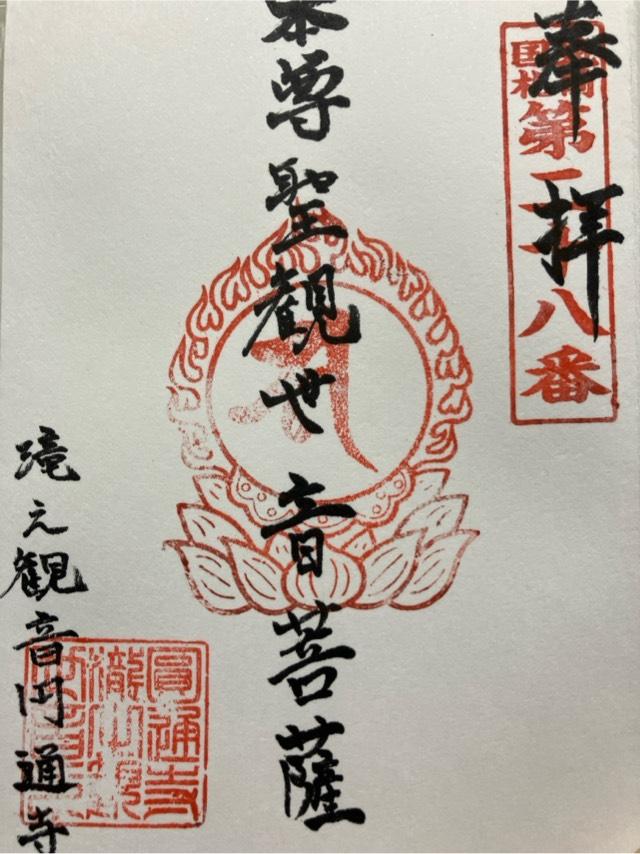 奉拝
第二十八番
本尊聖観世音菩薩
滝之観音円通寺
圓通寺